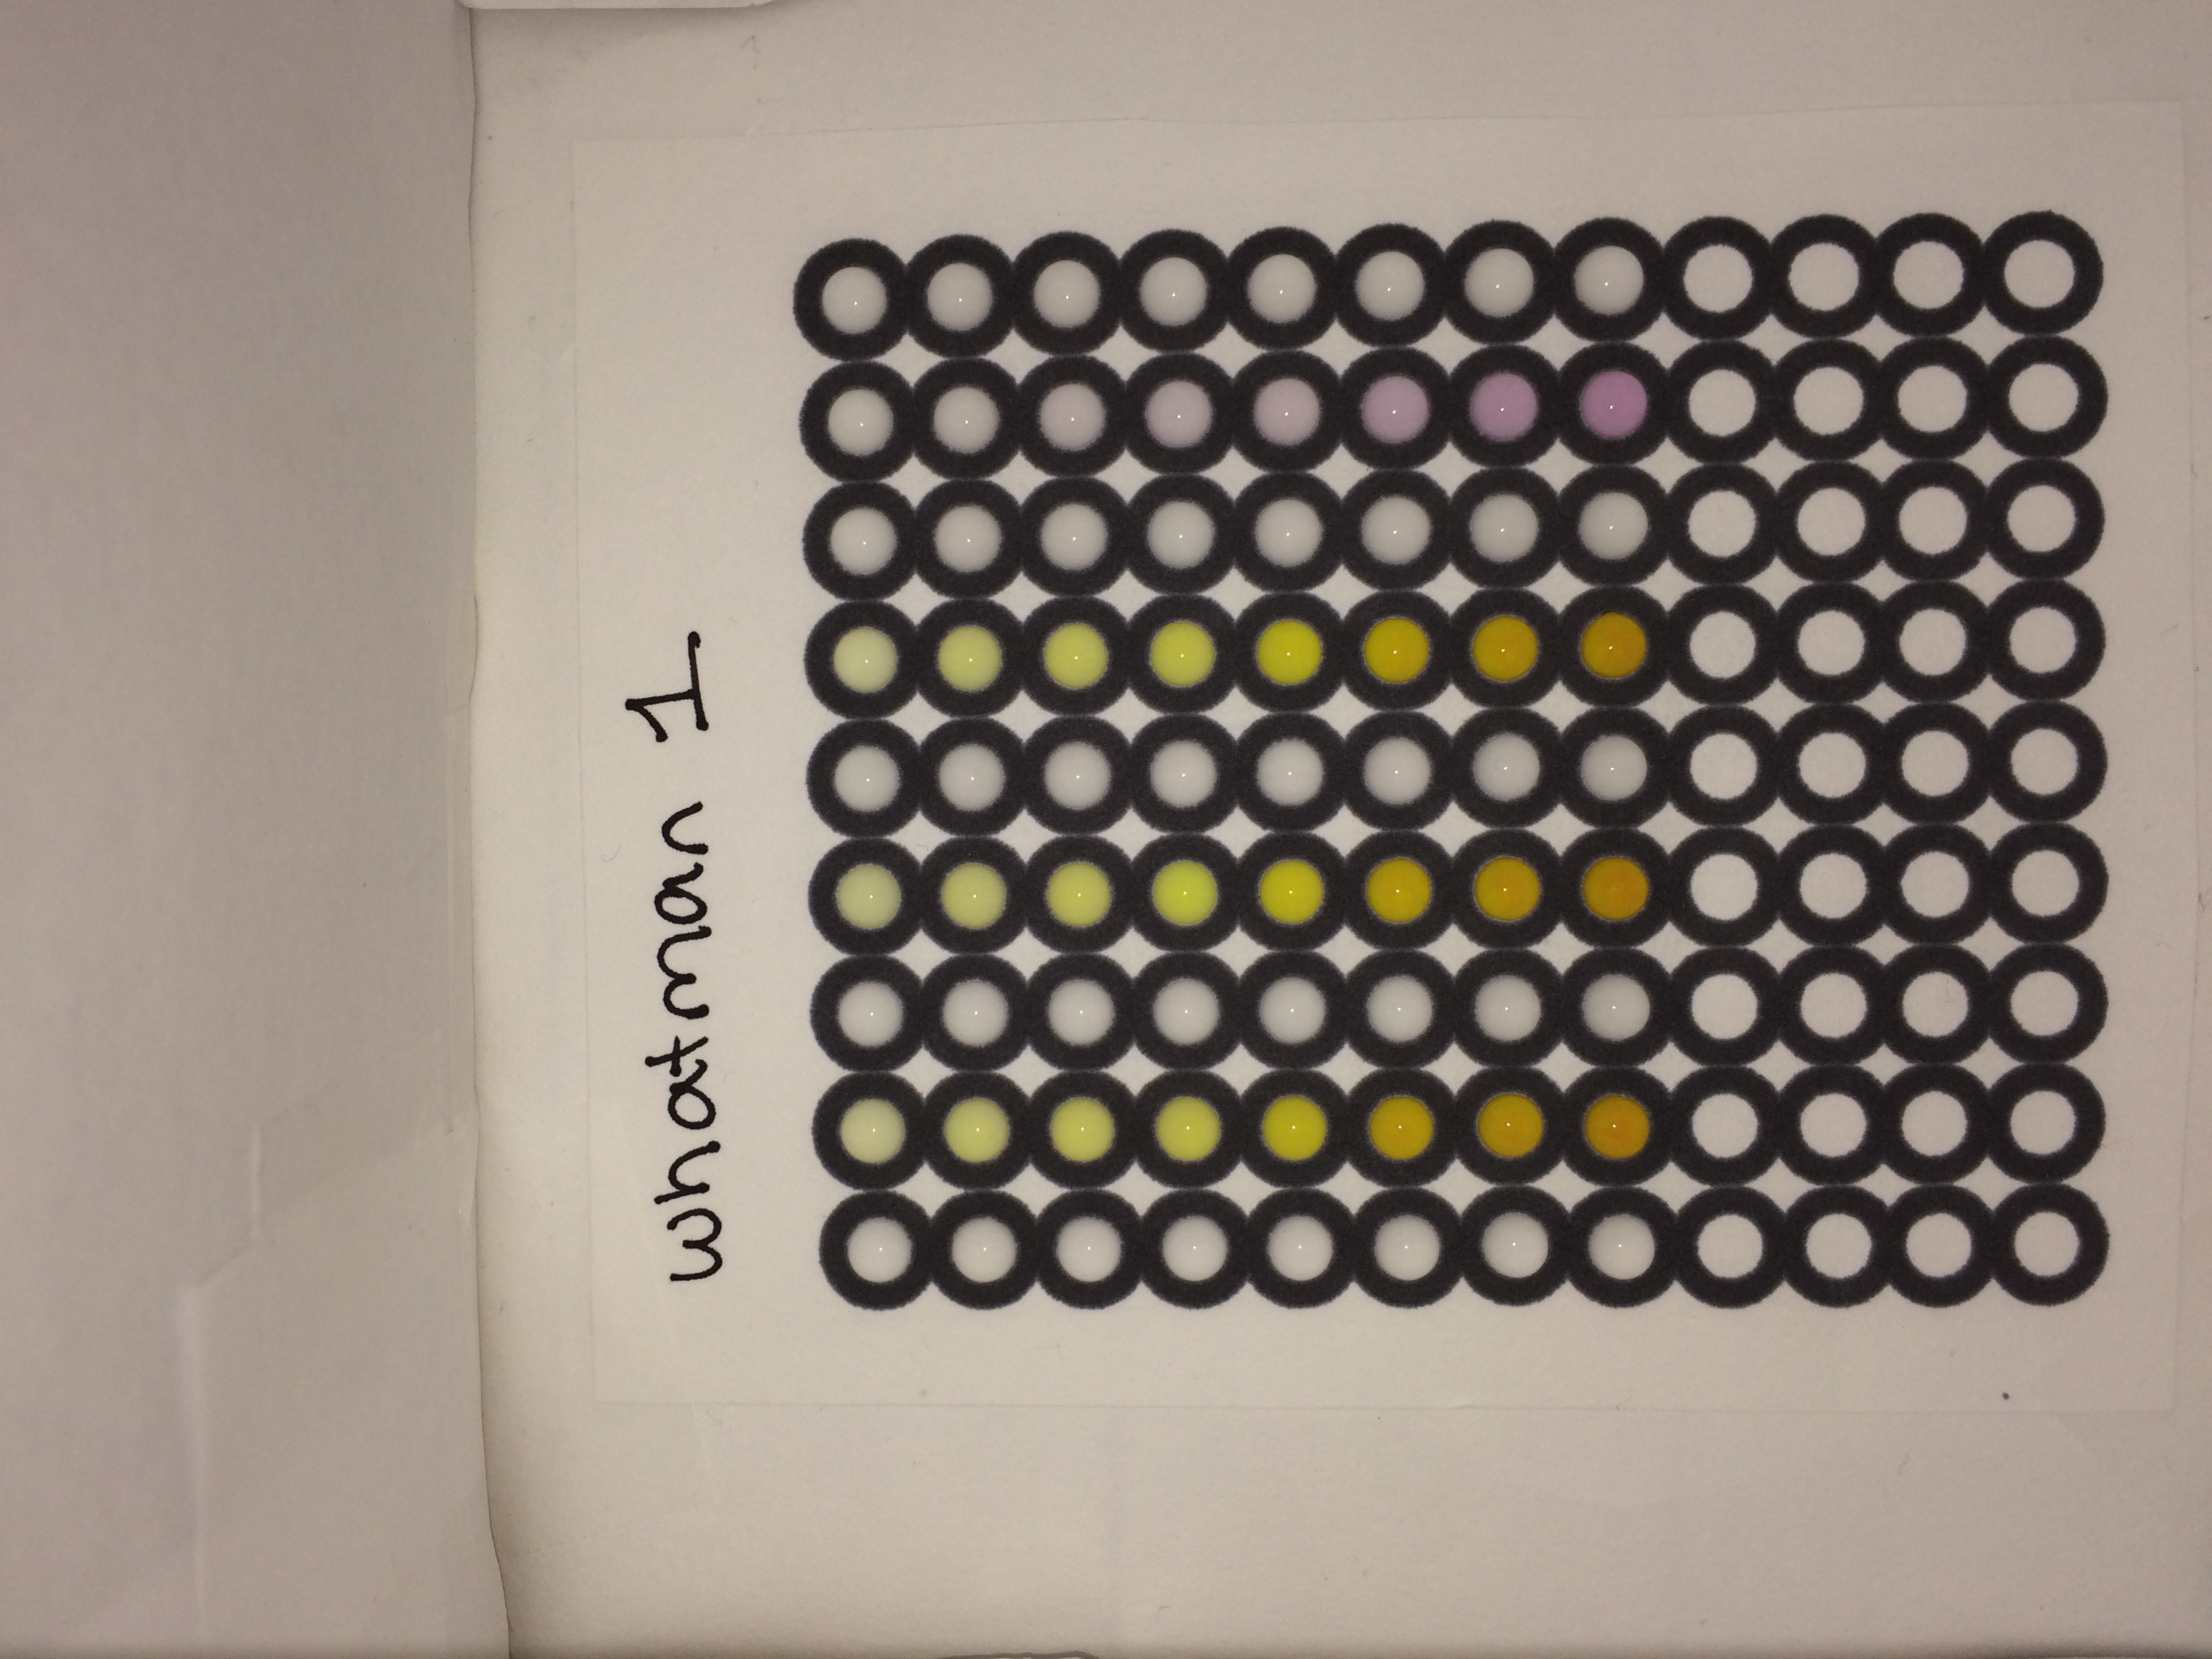 whatman 1